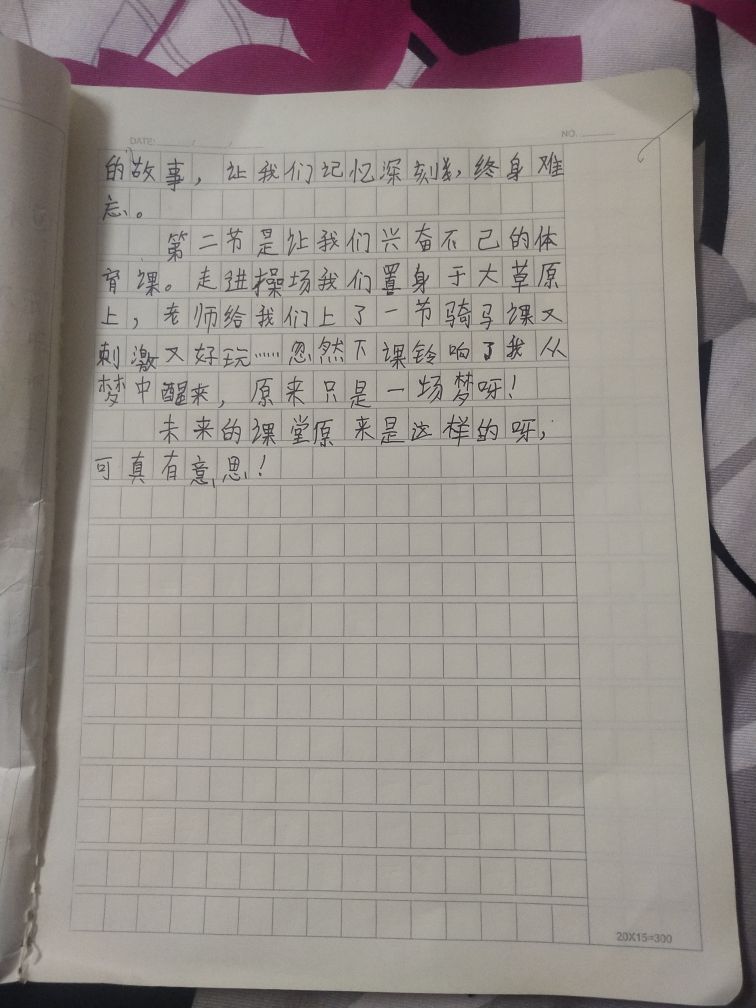 DATE: / /
NO.
的故事，让我们记忆深刻，终身难
忘。
第二节是让我们兴奋不已的体
育课。走进操场我们置身于大草原
上，老师给我们上了一节骑马课又
刺激又好玩……忽然下课铃响了我从
梦中醒来，原来只是一场梦呀！
未来的课堂原来是这样的呀，
可真有意思！
20X15=300